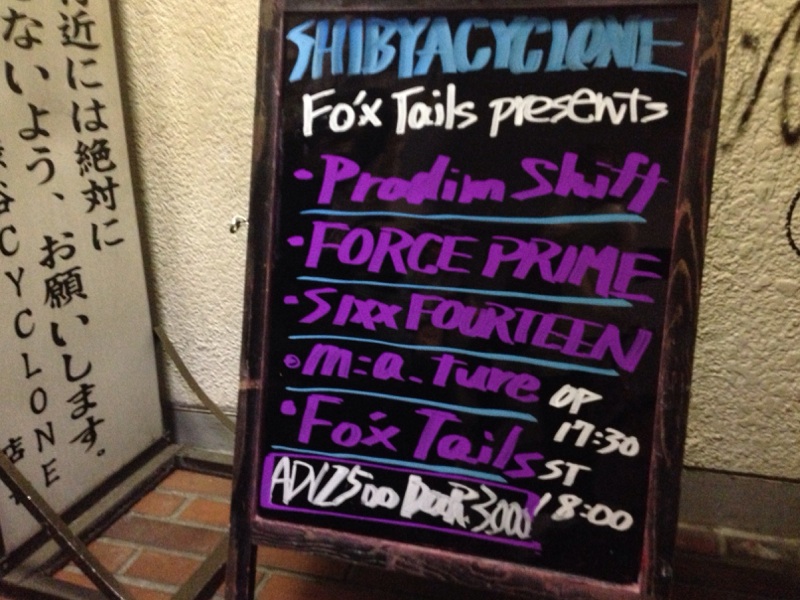 SHIBYACYCLONE
Fo'x Tails presents
・Prodim Shift
・FORCE PRIME
・SIXX FOURTEEN
・m:a.ture
・Fo'x Tails
OP
17:30
ST
18:00
ADV2500 DOOR3000
近には絶対に
ないよう、お願いします。
谷CYCLONE
店